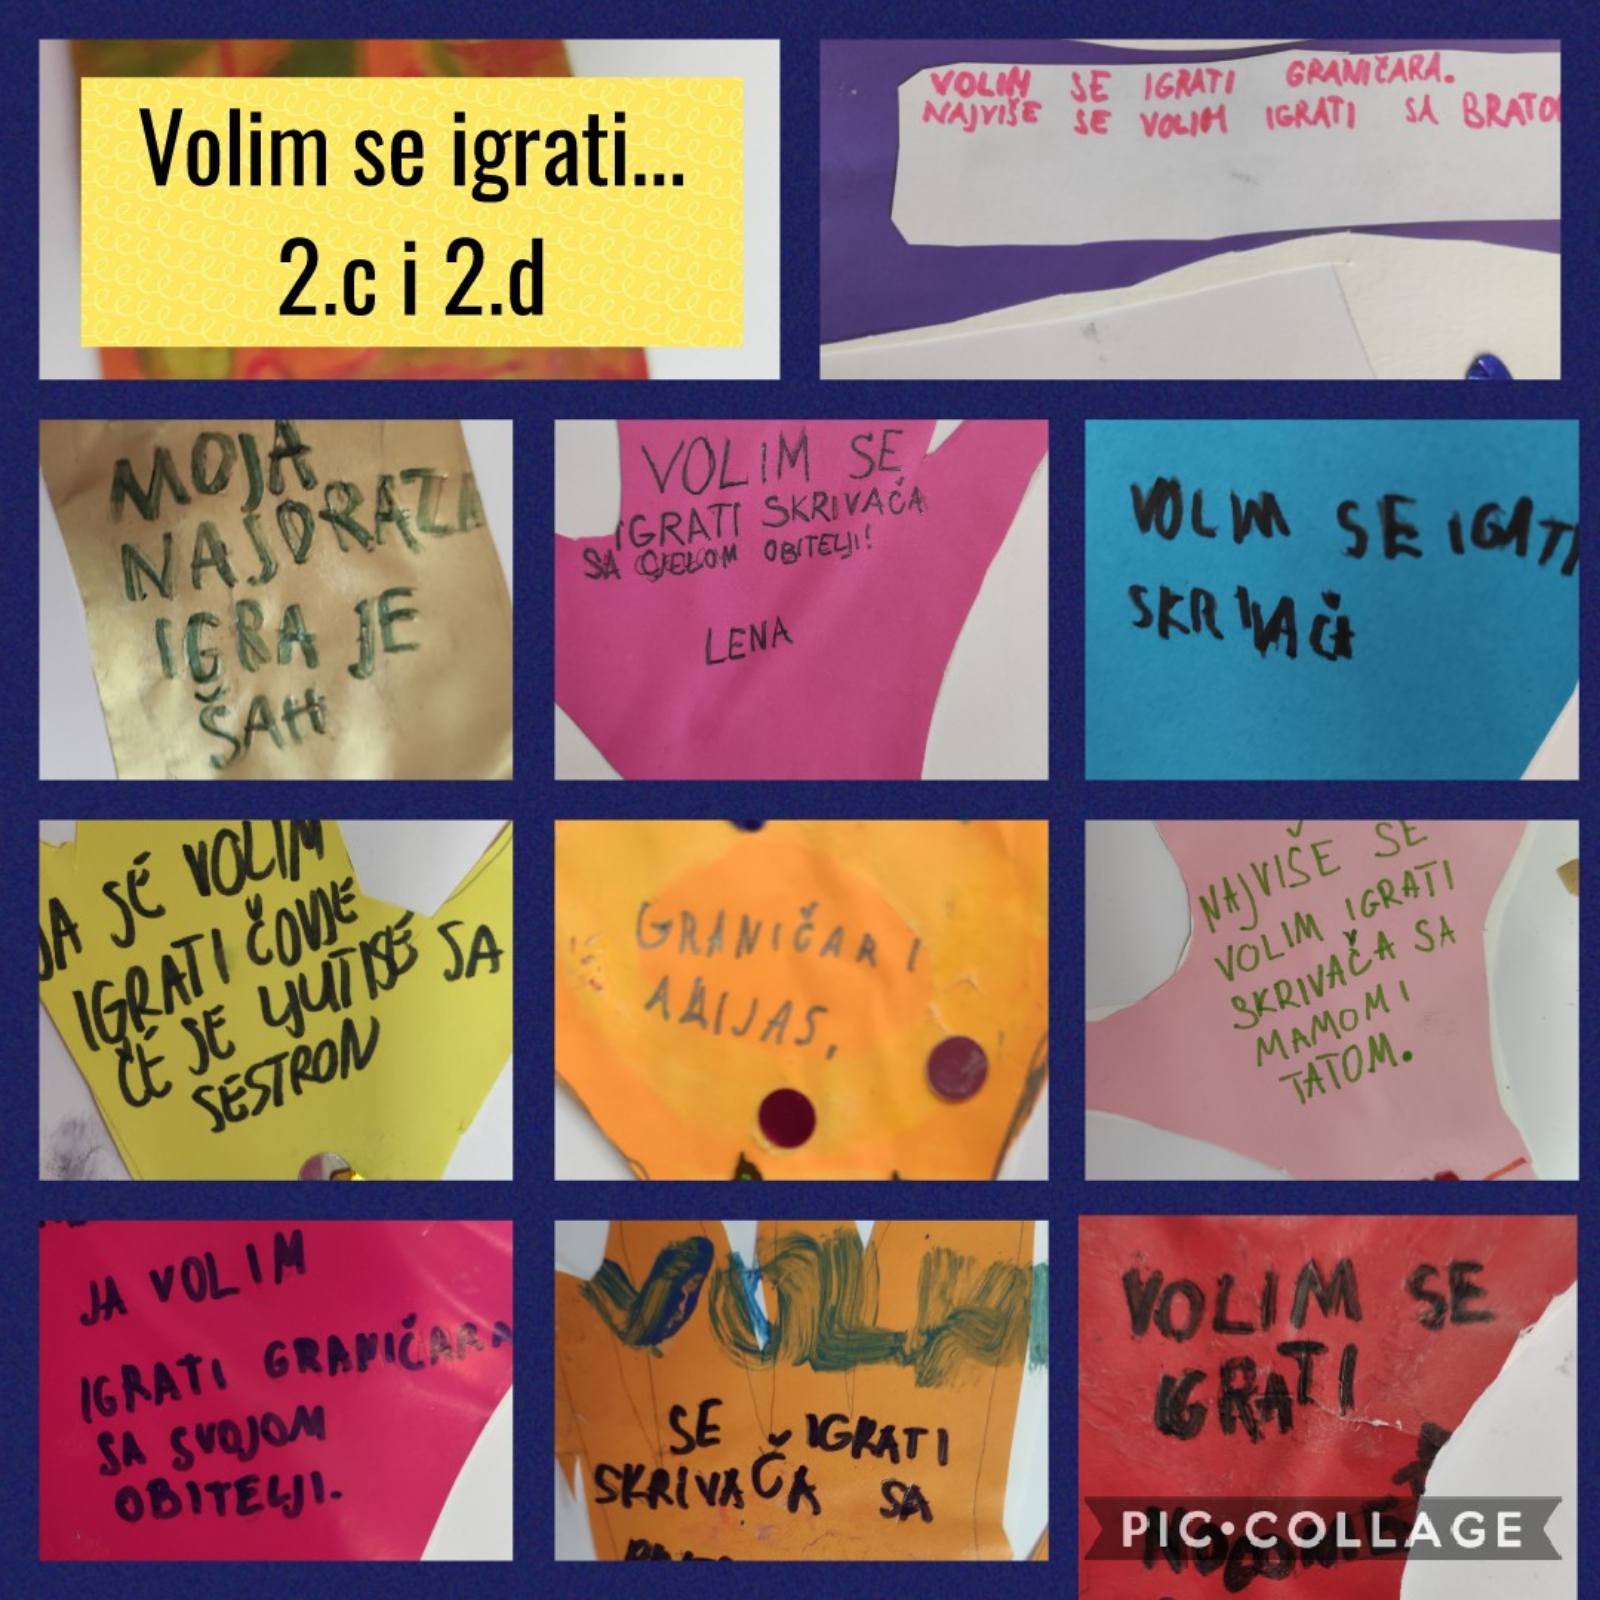 Volim se igrati...
2.c i 2.d
VOLIM SE IGRATI GRANIČARA.
NAJVIŠE SE VOLIM IGRATI SA BRATO
MOJA
NAJDRAŽA
IGRA JE
ŠAH
VOLIM SE
IGRATI SKRIVAČA
SA CJELOM OBITELJI!
LENA
VOLIM SE IGATI
SKRIVAČ
JA SE VOLIM
IGRATI ČOVJE
ČE SE LJUTI SE SA
SESTRON
GRANIČAR I
ALIJAS,
NAJVIŠE SE
VOLIM IGRATI
SKRIVAČA SA
MAMOM I
TATOM.
JA VOLIM
IGRATI GRANIČARA
SA SVOJOM
OBITELJI.
VOLIM
SE IGRATI
SKRIVAČA SA
VOLIM SE
IGRATI
PIC•COLLAGE